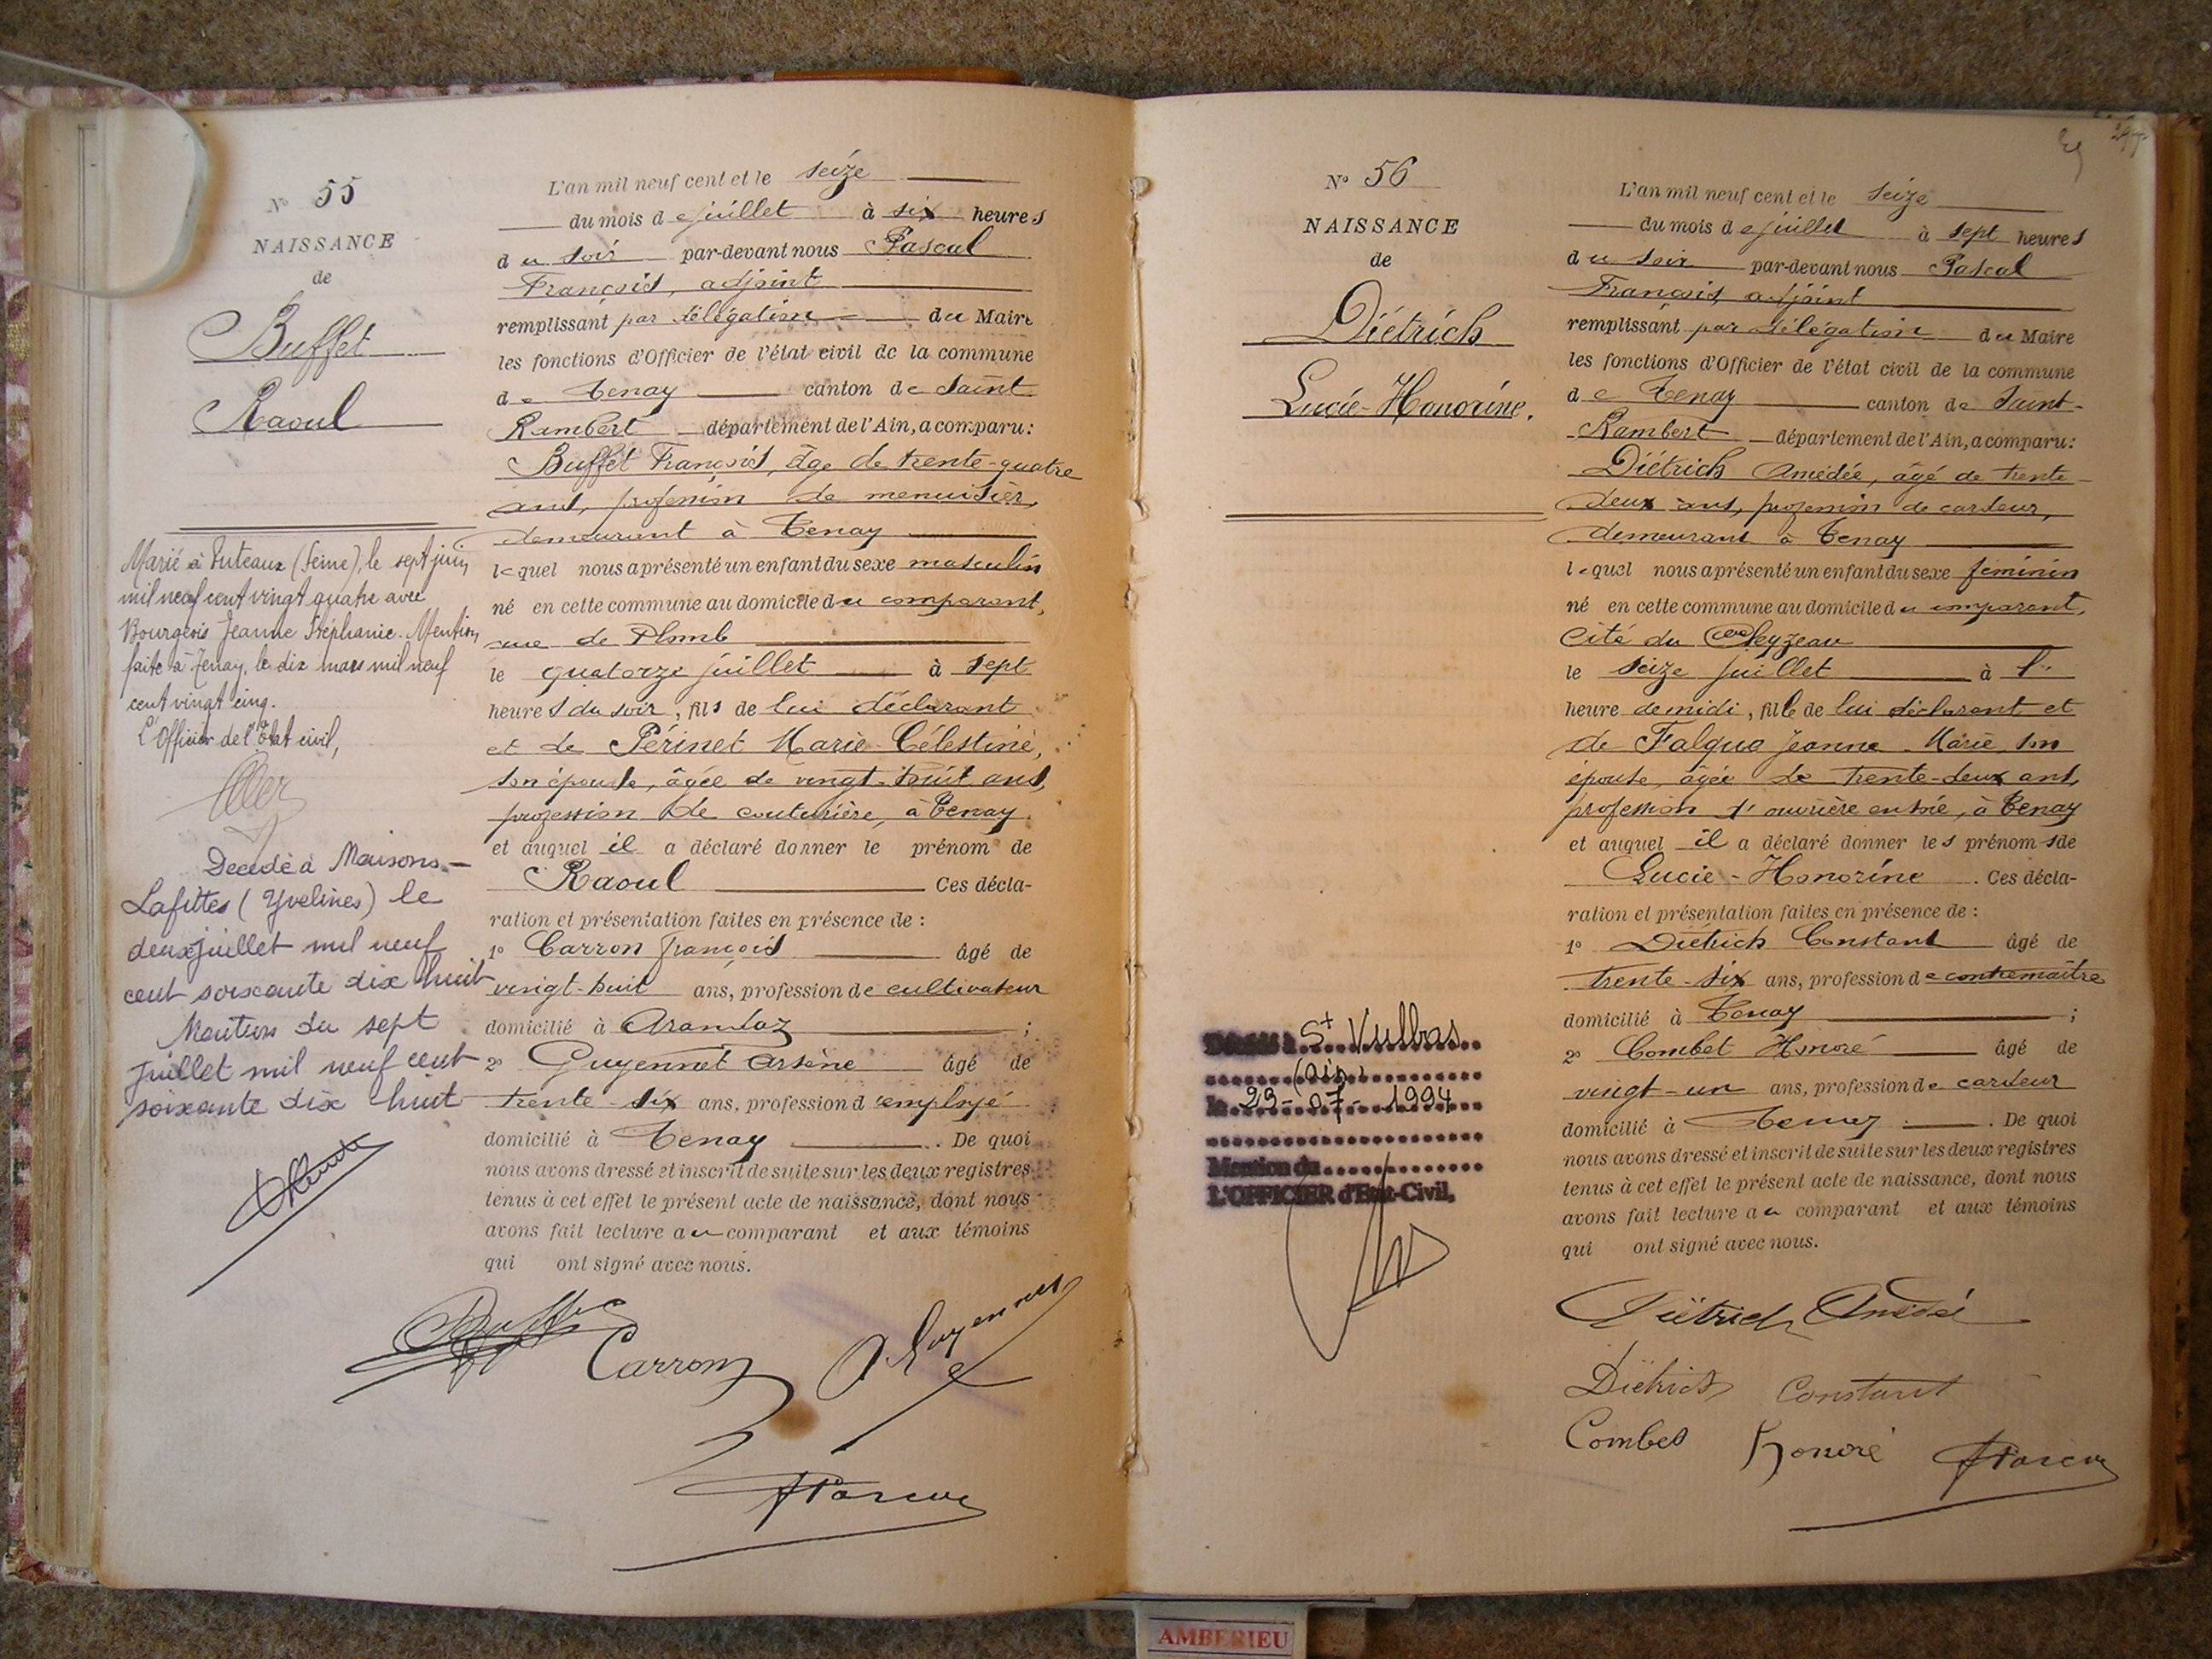 N° 55
NAISSANCE
de
Buffet
Raoul
Marié à Puteaux (Seine), le sept juin
mil neuf cent vingt quatre avec
Bourgeois Jeanne Stéphanie. Mention
faite à Tenay, le dix mars mil neuf
cent vingt cinq.
L'Officier de l'Etat civil,
Décédé à Maisons-
Lafittes (Yvelines) le
deux juillet mil neuf
cent soixante dix huit
Mention du sept
juillet mil neuf cent
soixante dix huit
L'an mil neuf cent et le seize
du mois de juillet à six heures
du soir par-devant nous Pascal
François, adjoint
remplissant par délégation du Maire
les fonctions d'Officier de l'état civil de la commune
de Tenay canton de Saint
Rambert département de l'Ain, a comparu:
Buffet François, âge de trente-quatre
ans, profession de menuisier,
demeurant à Tenay
lequel nous a présenté un enfant du sexe masculin
né en cette commune au domicile du comparant,
rue de Plomb
le quatorze juillet à sept
heures du soir, fils de lui déclarant
et de Périnet Marie-Célestine,
son épouse, âgée de vingt-huit ans,
profession de couturière, à Tenay.
et auquel il a déclaré donner le prénom de
Raoul Ces décla-
ration et présentation faites en présence de :
1° Carron François âgé de
vingt-huit ans, profession de cultivateur
domicilié à Arandaz ;
2° Guyennet Arsène âgé de
trente-six ans, profession d'employé
domicilié à Tenay . De quoi
nous avons dressé et inscrit de suite sur les deux registres
tenus à cet effet le présent acte de naissance, dont nous
avons fait lecture au comparant et aux témoins
qui ont signé avec nous.
Buffet
Carron
A. Guyennet
FPascal
N° 56
NAISSANCE
de
Diétrich
Lucie-Honorine.
Décédée à St Vulbas
(Ain)
le 29-07-1994
Mention du
L'OFFICIER d'Etat-Civil,
L'an mil neuf cent et le seize
du mois de juillet à sept heures
du soir par-devant nous Pascal
François, adjoint
remplissant par délégation du Maire
les fonctions d'Officier de l'état civil de la commune
de Tenay canton de Saint-
Rambert département de l'Ain, a comparu:
Diétrich Amédée, âgé de trente-
deux ans, profession de cardeur,
demeurant à Tenay
lequel nous a présenté un enfant du sexe féminin
né en cette commune au domicile du comparant,
cité du
le seize juillet à 1"
heure demidi, fille de lui déclarant et
de Falque Jeanne-Marie, son
épouse, âgée de trente-deux ans,
profession d'ouvrière en soie, à Tenay
et auquel il a déclaré donner les prénoms de
Lucie-Honorine . Ces décla-
ration et présentation faites en présence de :
1° Diétrich Constant âgé de
trente-six ans, profession de contremaître
domicilié à Tenay ;
2° Combet Honoré âgé de
vingt-un ans, profession de cardeur
domicilié à Tenay . De quoi
nous avons dressé et inscrit de suite sur les deux registres
tenus à cet effet le présent acte de naissance, dont nous
avons fait lecture au comparant et aux témoins
qui ont signé avec nous.
Diétrich Amédé
Diétrich Constant
Combet Honoré FPascal
AMBERIEU